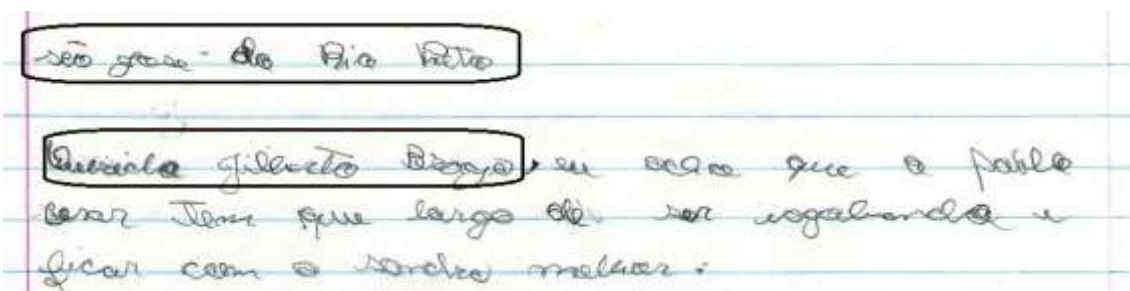 são jose do Rio Preto
Querido gilberto Braga, eu acho que o pablo
cesar Tem que largo de ser vagabundo e
ficar com a sandra melhor.